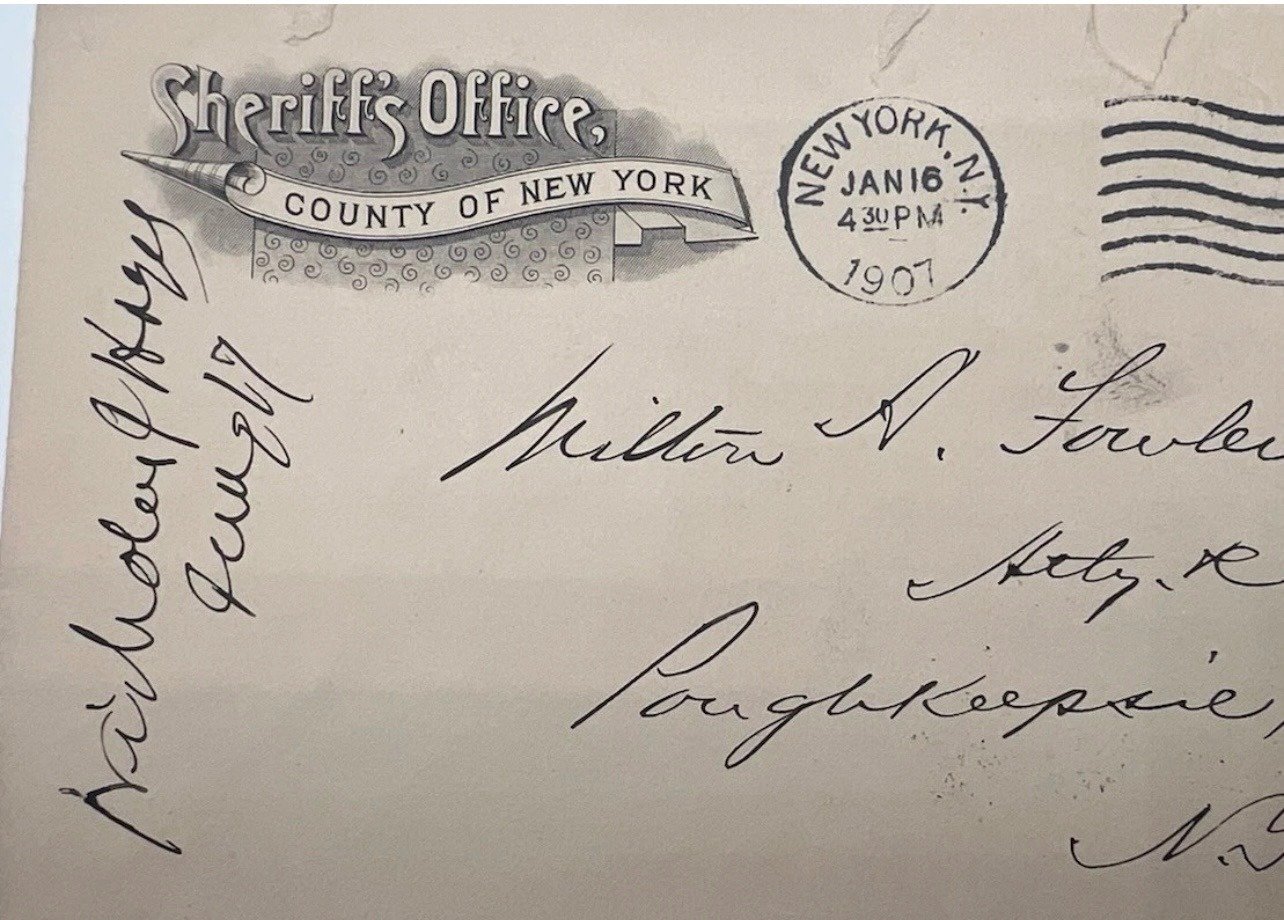 Sheriff's Office,
COUNTY OF NEW YORK
NEW YORK, N.Y.
JAN 16
4 30 PM
1907
Nicholas J Hayes
Jany 17
Milton A. Fowler
Atty. R
Poughkeepsie,
N.Y